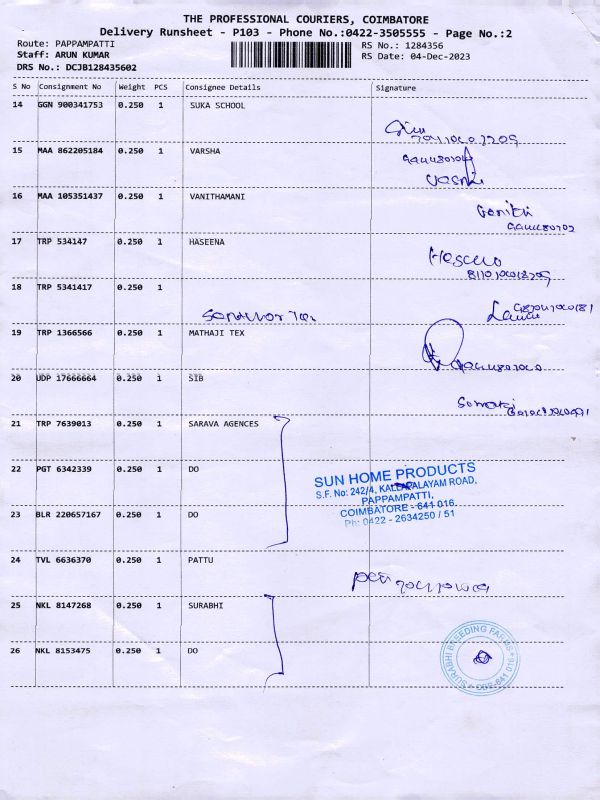 THE PROFESSIONAL COURIERS, COIMBATORE
Delivery Runsheet - P103 - Phone No.:0422-3505555 - Page No.:2
Route: PAPPAMPATTI
RS No.: 1284356
Staff: ARUN KUMAR
RS Date: 04-Dec-2023
DRS No.: DCJB128435602
S No Consignment No Weight PCS Consignee Details Signature
14 GGN 900341753 0.250 1 SUKA SCHOOL
15 MAA 862205184 0.250 1 VARSHA
16 MAA 105351437 0.250 1 VANITHAMANI
17 TRP 534147 0.250 1 HASEENA
18 TRP 5341417 0.250 1
19 TRP 1366566 0.250 1 MATHAJI TEX
20 UDP 17666664 0.250 1 SIB
21 TRP 7639013 0.250 1 SARAVA AGENCES
22 PGT 6342339 0.250 1 DO
SUN HOME PRODUCTS
S.F. No: 242/4, KALLAPALAYAM ROAD,
PAPPAMPATTI,
COIMBATORE - 641 016.
Ph: 0422 - 2634250 / 51
23 BLR 220657167 0.250 1 DO
24 TVL 6636370 0.250 1 PATTU
25 NKL 8147268 0.250 1 SURABHI
26 NKL 8153475 0.250 1 DO
SURABHI BREEDING FARMS
CBE-641 016